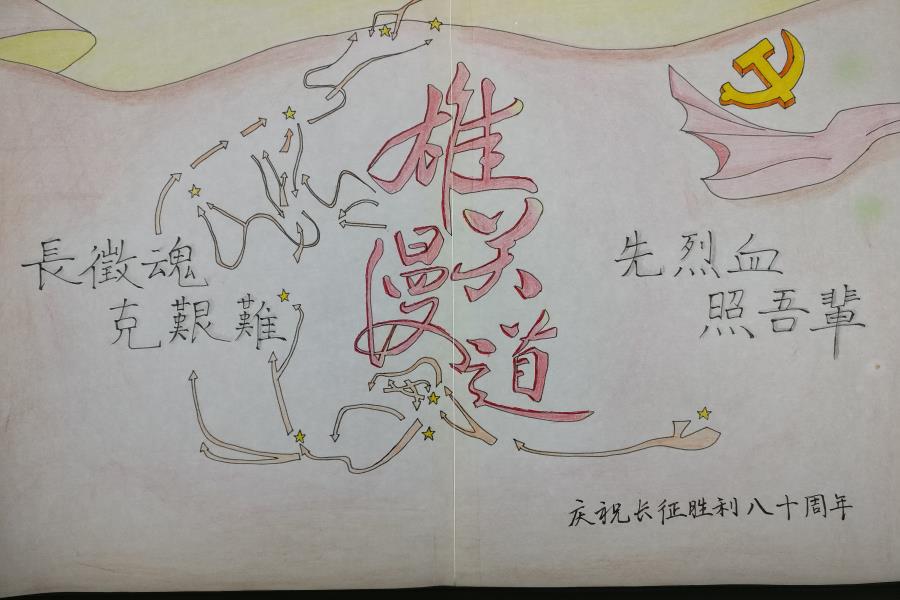 雄关
漫道
長徵魂
克艱難
先烈血
照吾輩
庆祝长征胜利八十周年